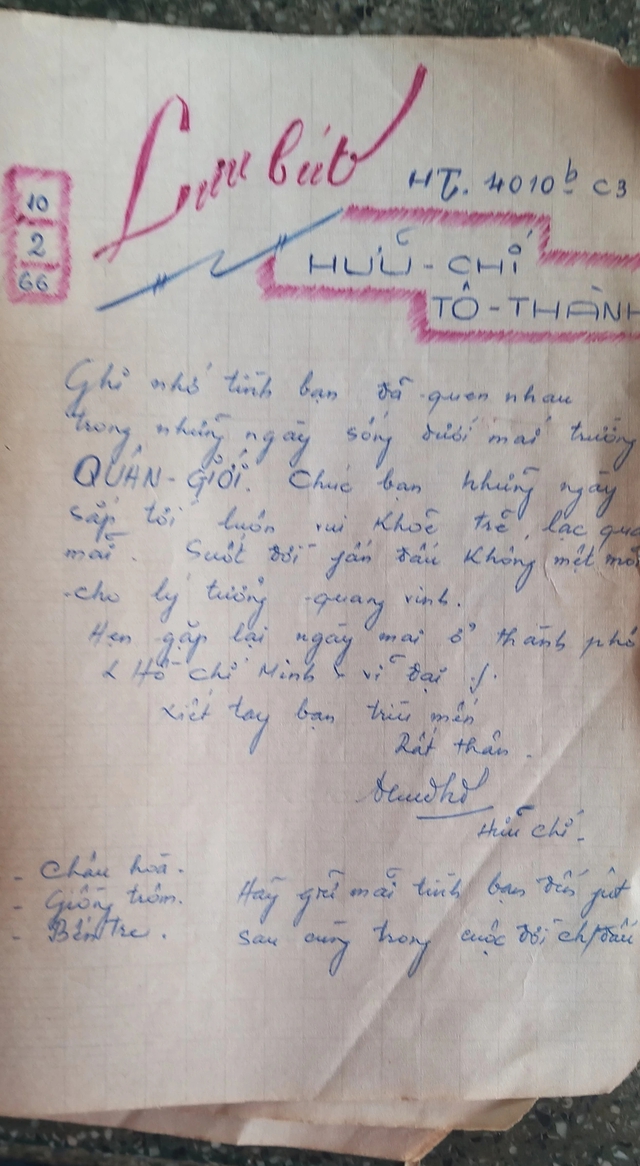 Lưu bút
HT. 4010b C3
10
2
66
HỮU-CHÍ
TÔ-THÀNH
Ghi nhớ tình bạn đã quen nhau
trong những ngày sống dưới mái trường
QUÂN-GIỚI. Chúc bạn những ngày
sắp tới luôn vui khoẻ trẻ, lạc qua
mãi. Suốt đời phấn đấu không mệt mỏi
cho lý tưởng quang vinh.
Hẹn gặp lại ngày mai ở thành phố
Hồ Chí Minh vĩ đại
Xiết tay bạn trìu mến
Rất thân.
Hữu Chí.
- Châu hoà.
- Giồng trôm.
- Bến tre.
Hãy giữ mãi tình bạn đến phút
sau cùng trong cuộc đời ch/đấu